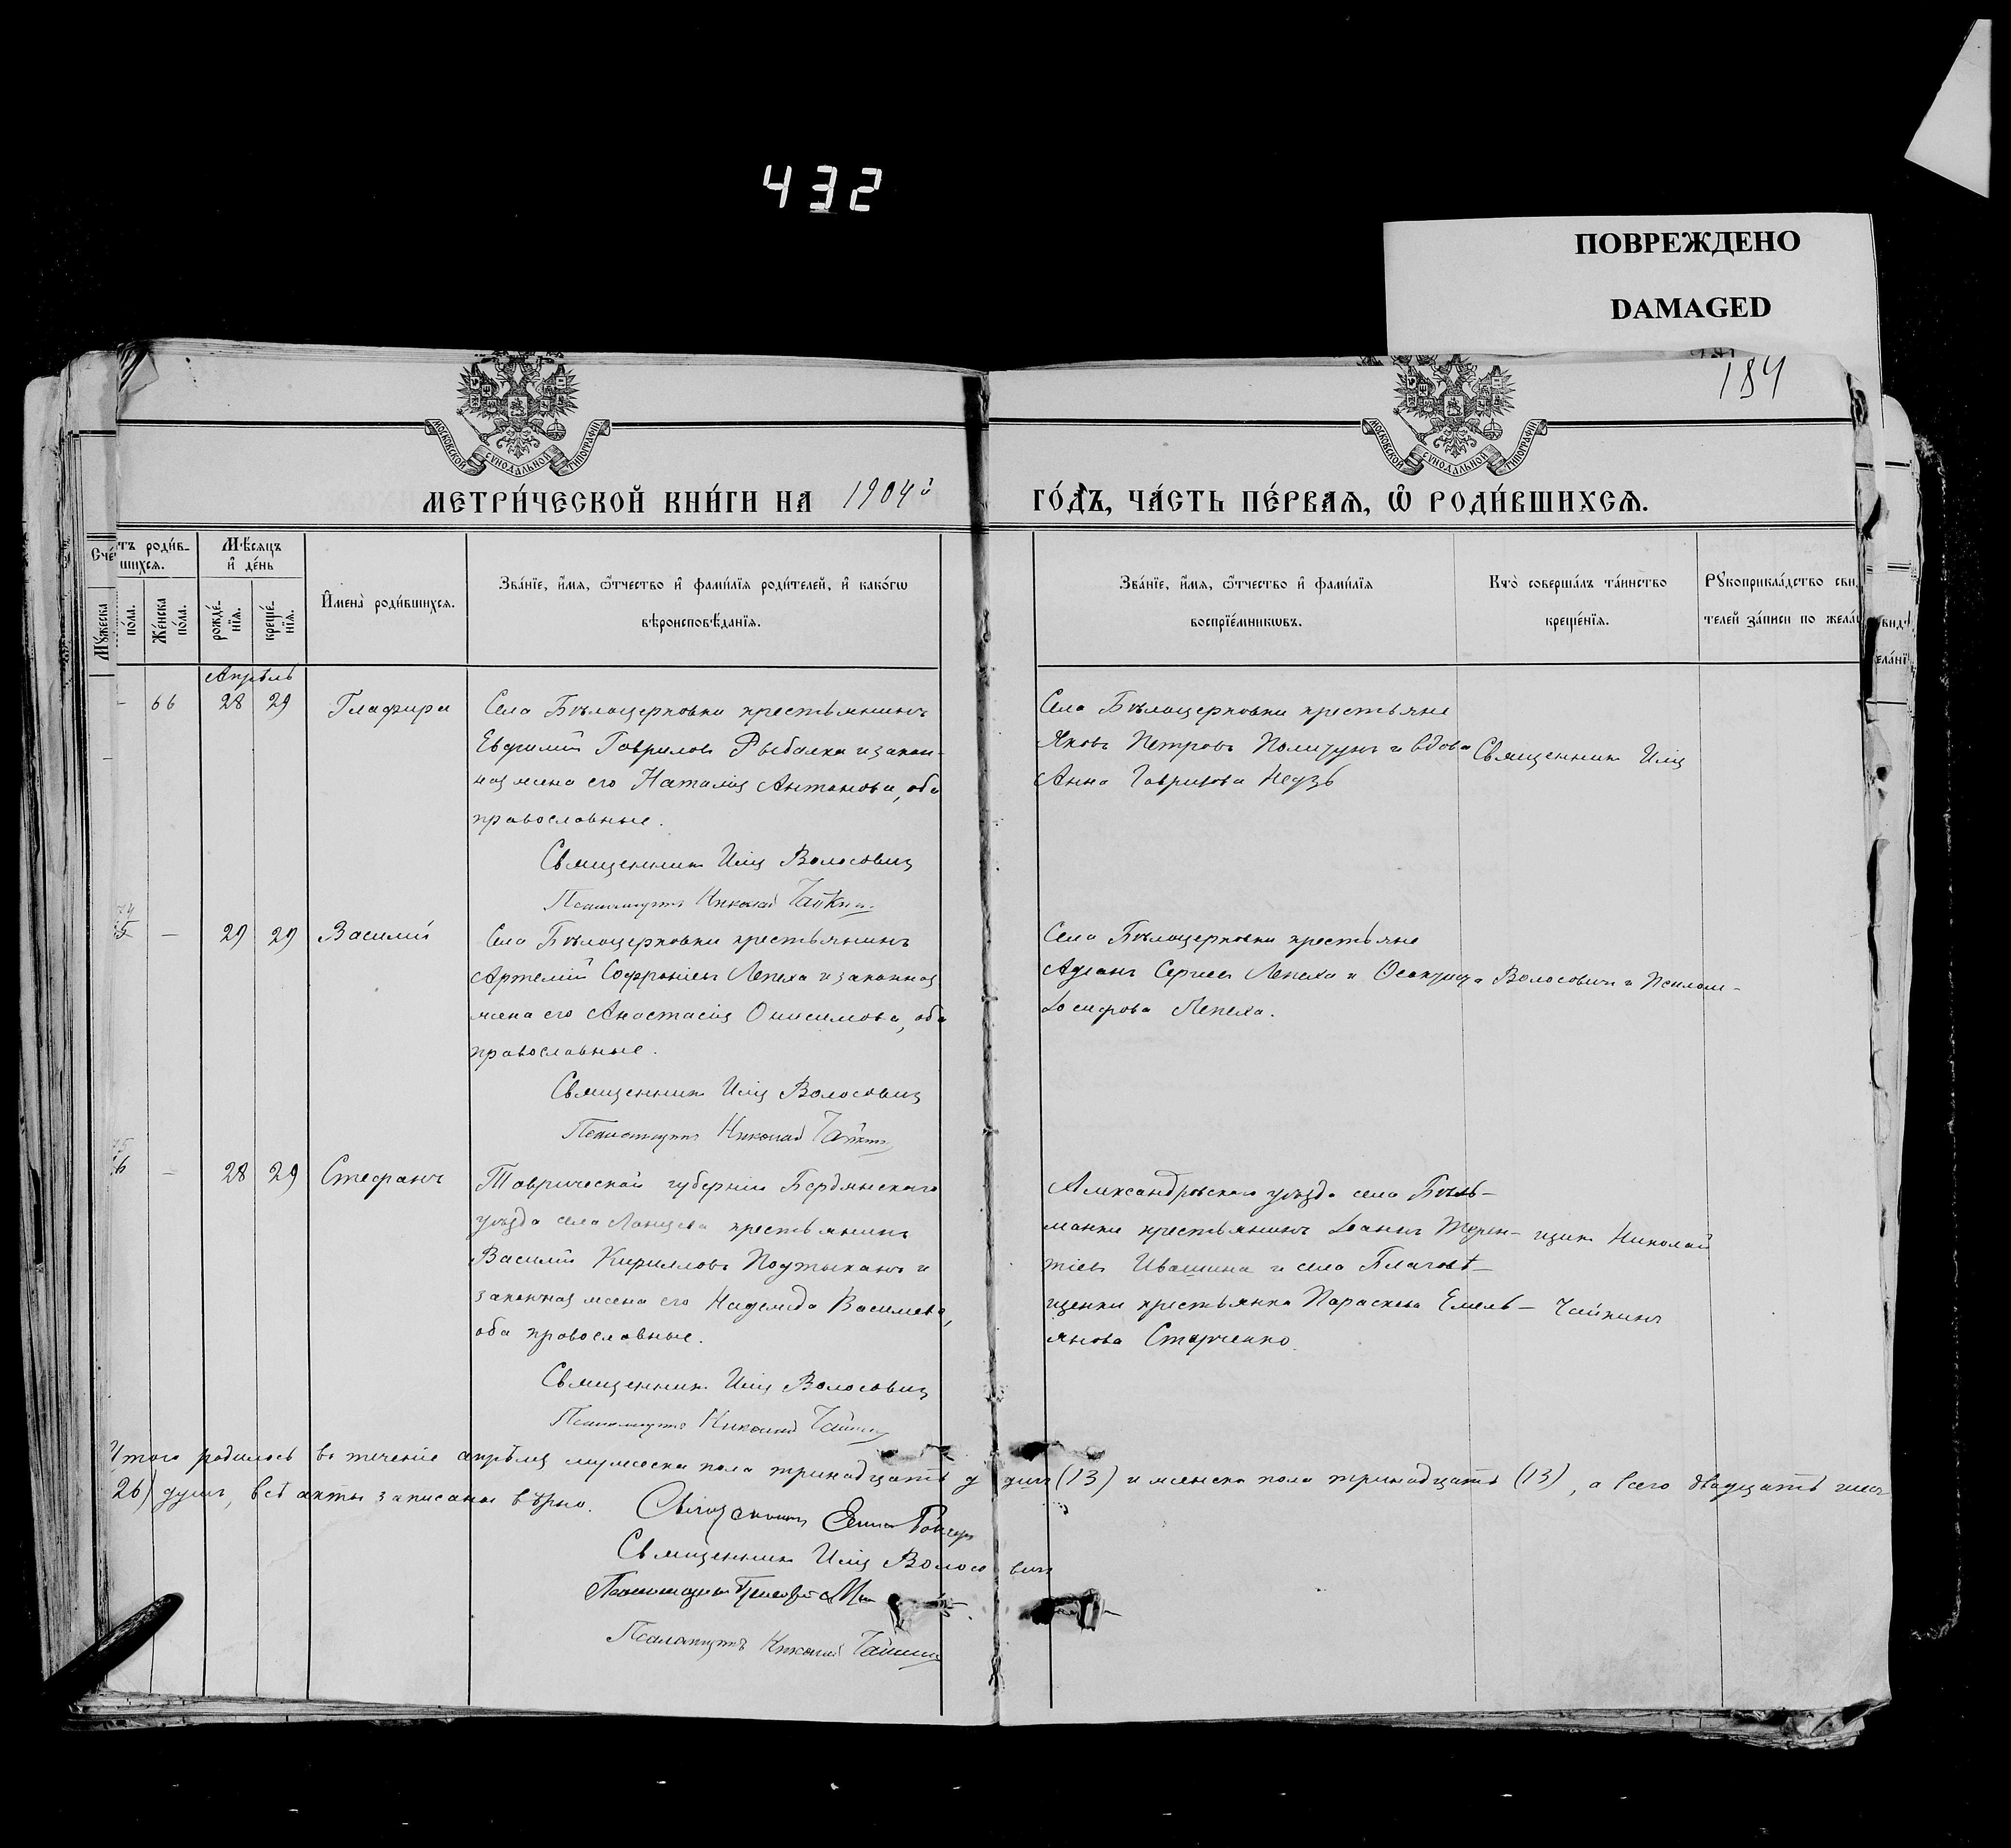 432
ПОВРЕЖДЕНО
DAMAGED
184
МОСКОВСКОЙ СѴНОДАЛЬНОЙ ТИПОГРАФІИ
МОСКОВСКОЙ СѴНОДАЛЬНОЙ ТИПОГРАФІИ
МЕТРИ́ЧЕСКОЙ КНИ́ГИ НА 1904й
ГО́ДЪ, ЧА́СТЬ ПЕ́РВАЯ, Ѡ РОДИ́ВШИХСЯ.
Сче́тъ роди́вшихся.
Му́жеска по́ла.
Же́нска по́ла.
Мѣ́сяцъ и҆ де́нь
рожде́нїя.
креще́нїя.
И҆мена̀ роди́вшихся.
Зва́нїе, и҆́мя, ѻ҆́тчество и҆ фами́лїя роди́телей, и҆ како́гѡ вѣроисповѣ́данїя.
Зва́нїе, и҆́мя, ѻ҆́тчество и҆ фами́лїя воспрїе́мникѡвъ.
Кто̀ соверша́лъ та́инство креще́нїя.
Рꙋкоприкла́дство сви
телей за́писи по жела́
Апрѣль
66 28 29 Глафира
Села Бѣлоцерковки крестьянинъ
Евфимій Гавриловъ Рыбалка и закон-
ная жена его Наталія Антонова, оба
православные.
Священникъ Илія Волосовичъ
Псаломщикъ Николай Чайкинъ
Села Бѣлоцерковки крестьяне
Яковъ Петровъ Полигунъ и вдова
Анна Гаврилова
Священникъ Илія
74
5 — 29 29 Василій
Села Бѣлоцерковки крестьянинъ
Артемій Софроніевъ Лепеха и законная
жена его Анастасія Онисимова, оба
православные.
Священникъ Илія Волосовичъ
Псаломщикъ Николай Чайкинъ
Села Бѣлоцерковки крестьяне
Сергіевъ Лепеха и
Іосифова Лепеха.
Волосовичъ и Псалом-
75
6 — 28 29 Стефанъ
Таврической губерніи Бердянскаго
уѣзда села крестьянинъ
Василій Кирилловъ и
законная жена его Надежда Васильева,
оба православные.
Священникъ Илія Волосовичъ
Псаломщикъ Николай Чайкинъ
Александровскаго уѣзда села Бѣль-
манки крестьянинъ Іоаннъ Терен-
тіевъ Ивашина и села Благовѣ-
щенки крестьянка Параскева Емель-
янова Старченко.
щикъ Николай
Чайкинъ
Итого родилось въ теченіе апрѣля мужеска пола тринадцать душъ (13) и женска пола тринадцать (13), а всего двадцать шест
26) душъ, всѣ акты записаны вѣрно.
Священникъ Илія Волосовичъ
Псаломщикъ Николай Чайкинъ